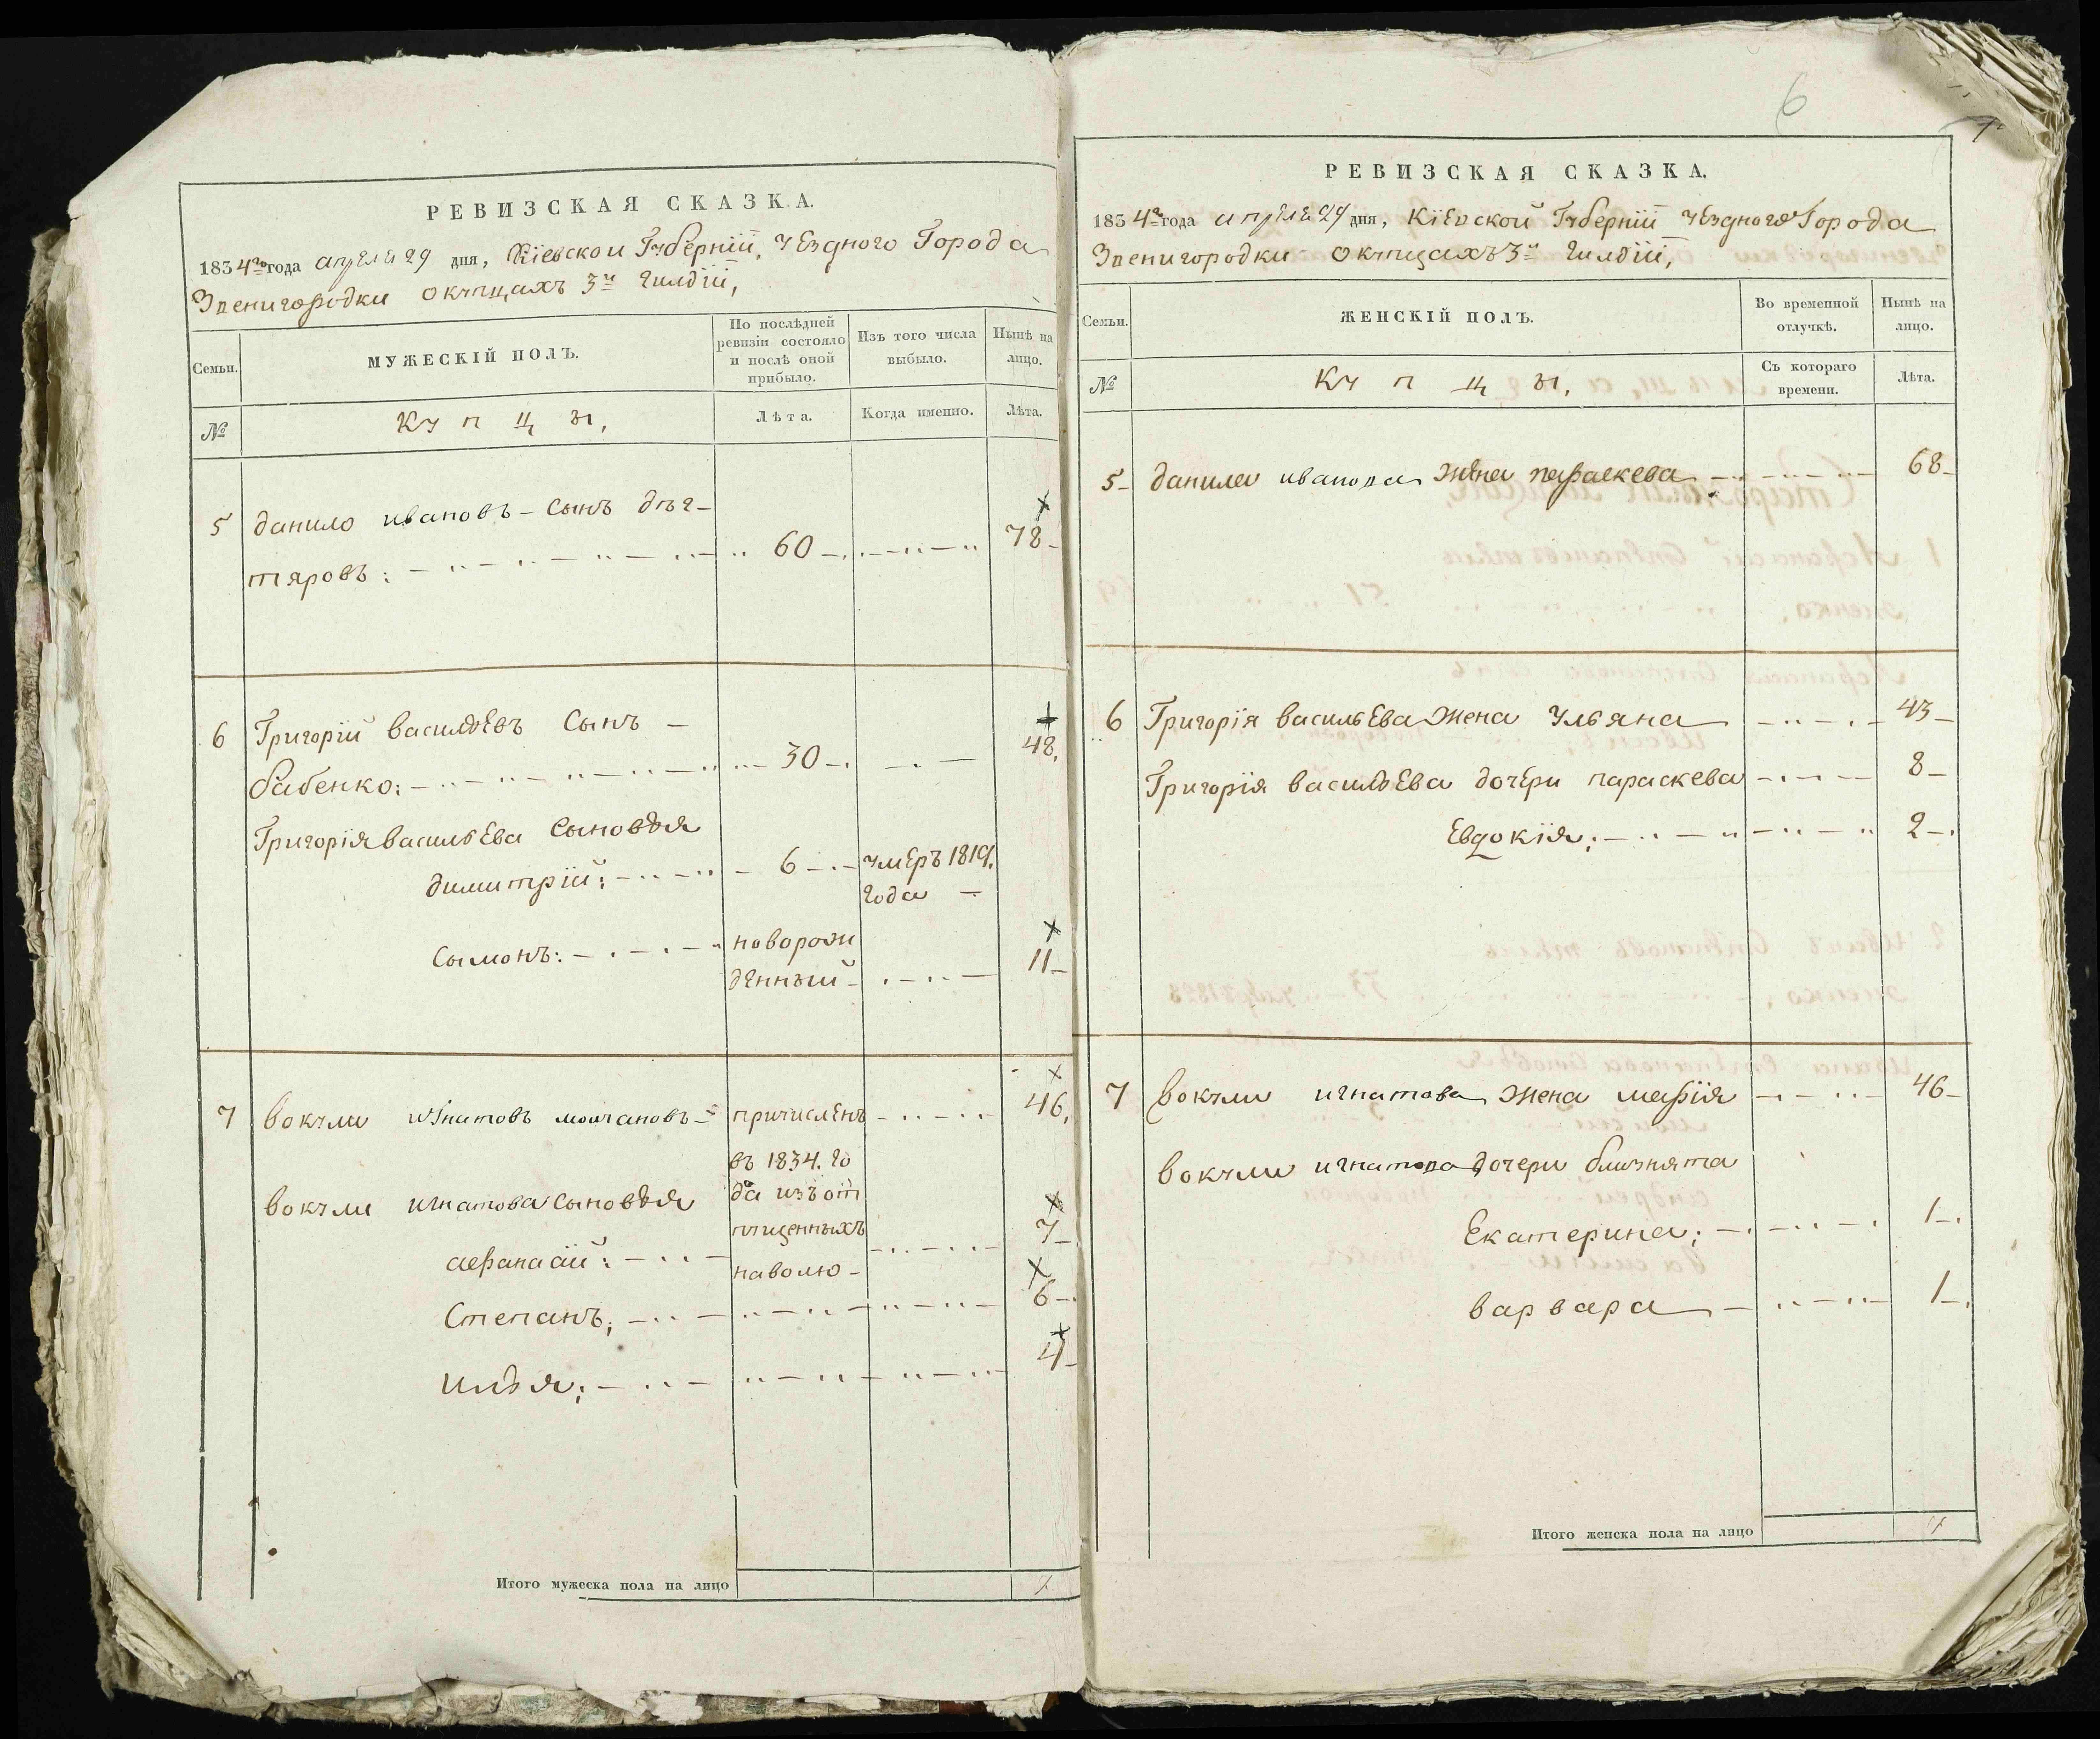 РЕВИЗСКАЯ СКАЗКА.
1834го года апреля 29 дня, Кіевской Губерніи, уезднаго Города
Звенигородки окупцахъ 3й Гилдіи,
Семьи.
МУЖЕСКІЙ ПОЛЪ.
По послѣдней ревизіи состояло и послѣ оной прибыло.
Изъ того числа выбыло.
Нынѣ на лицо.
№
Купцы,
Лѣта.
Когда именно.
Лѣта.
5 данило ивановъ - сынъ дѣг-
тяровъ: 60 78
6 Григорій васильевъ Сынъ -
бабенко: 30 48
Григорія васильева сыновья
димитрій: 6 умеръ 1819.
года
сымонъ: новорож
денный 11
7 вокули игнатовъ молчановъ причисленъ 46
въ 1834. го
вокули игнатова сыновья да изъ от
пущенныхъ
афанасій: 7
наволю -
Степанъ; 6
илья; 4
Итого мужеска пола на лицо 7
6
РЕВИЗСКАЯ СКАЗКА.
1834го года апреля 29 дня, Кіевской Губерніи уезднаго Города
Звенигородки окупцахъ 3й Гилдіи,
Семьи.
ЖЕНСКІЙ ПОЛЪ.
Во временной отлучкѣ.
Нынѣ на лицо.
№
Купцы,
Съ котораго времени.
Лѣта.
5 данила иванова жена параскева 68
6 Григорія васильева жена Ульяна 43
Григорія васильева дочери параскева 8
Евдокія; 2
7 вокули игнатова жена марія 46
вокули игнатова дочери близнята
Екатерина; 1
варвара 1
Итого женска пола на лицо